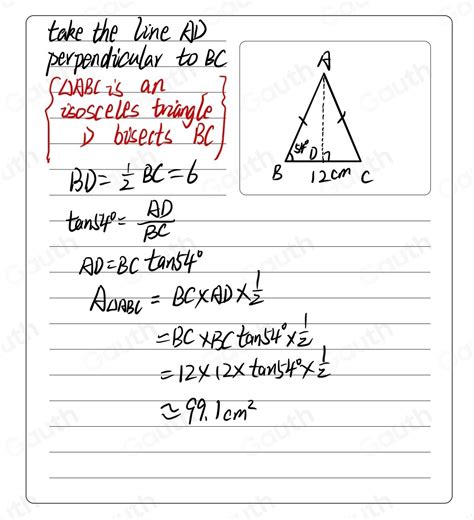 take the line AD
perpendicular to BC
△ABC is an
isosceles triangle
D bisects BC
BD=1/2 BC=6
tan54°=AD/BC
AD=BC tan54°
A△ABC = BC×AD×1/2
=BC×BC tan54°×1/2
=12×12×tan54°×1/2
≃99.1cm²
A
54°
D
B
12cm
C
Gauth